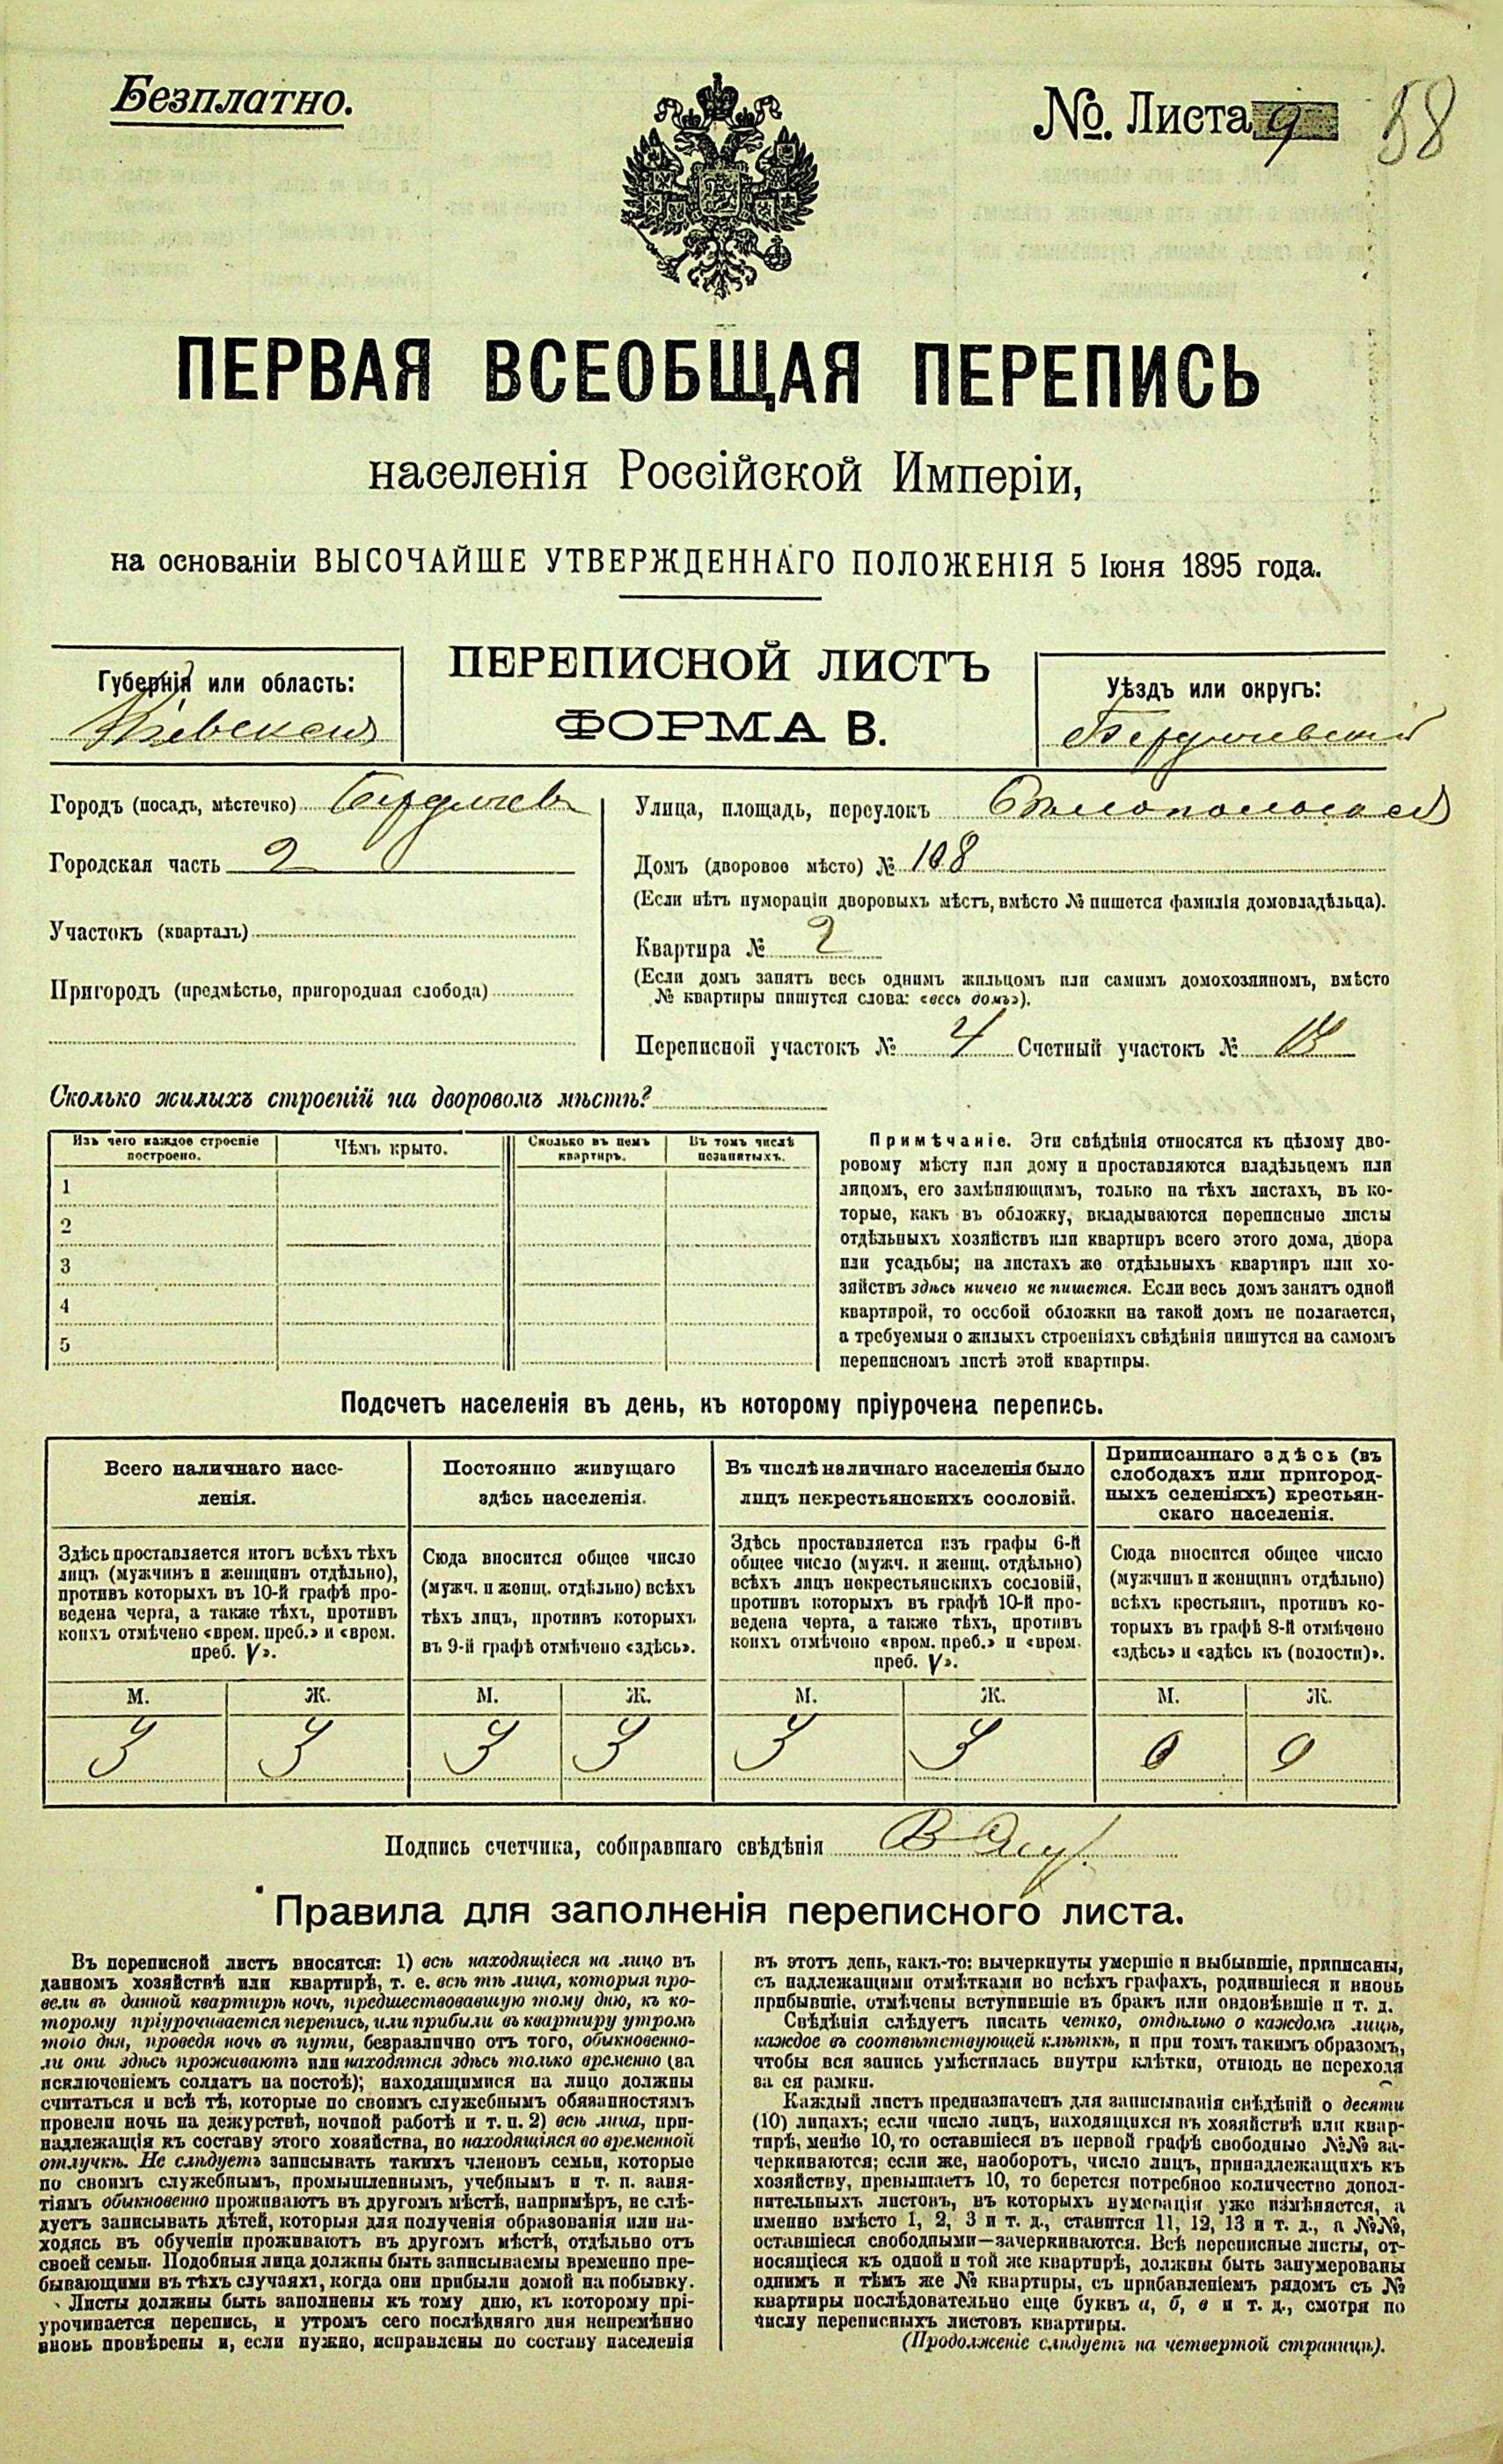 Безплатно.
№. Листа 9
58
ПЕРВАЯ ВСЕОБЩАЯ ПЕРЕПИСЬ
населенія Россійской Имперіи,
на основаніи ВЫСОЧАЙШЕ УТВЕРЖДЕННАГО ПОЛОЖЕНІЯ 5 Іюня 1895 года.
Губернія или область:
Кіевская
ПЕРЕПИСНОЙ ЛИСТЪ
ФОРМА В.
Уѣздъ или округъ:
Бердичевскій
Городъ (посадъ, мѣстечко) Бердичев
Городская часть 2
Участокъ (кварталъ)
Пригородъ (предмѣстье, пригородная слобода)
Улица, площадь, переулокъ Бѣлопольская
Домъ (дворовое мѣсто) № 108
(Если нѣтъ нумераціи дворовыхъ мѣстъ, вмѣсто № пишется фамилія домовладѣльца).
Квартира № 2
(Если домъ занятъ весь однимъ жильцомъ или самимъ домохозяиномъ, вмѣсто
№ квартиры пишутся слова: «весь домъ»).
Переписной участокъ № 4 Счетный участокъ №
Сколько жилыхъ строеній на дворовомъ мѣстѣ?
Изъ чего каждое строеніе
построено.
Чѣмъ крыто.
Сколько въ немъ
квартиръ.
Въ томъ числѣ
незанятыхъ.
1
2
3
4
5
Примѣчаніе. Эти свѣдѣнія относятся къ цѣлому дво-
ровому мѣсту или дому и проставляются владѣльцемъ или
лицомъ, его замѣняющимъ, только на тѣхъ листахъ, въ ко-
торые, какъ въ обложку, вкладываются переписные листы
отдѣльныхъ хозяйствъ или квартиръ всего этого дома, двора
или усадьбы; на листахъ же отдѣльныхъ квартиръ или хо-
зяйствъ здѣсь ничего не пишется. Если весь домъ занятъ одной
квартирой, то особой обложки на такой домъ не полагается,
а требуемыя о жилыхъ строеніяхъ свѣдѣнія пишутся на самомъ
переписномъ листѣ этой квартиры.
Подсчетъ населенія въ день, къ которому пріурочена перепись.
Всего наличнаго насе-
ленія.
Постоянно живущаго
здѣсь населенія.
Въ числѣ наличнаго населенія было
лицъ некрестьянскихъ сословій.
Приписаннаго здѣсь (въ
слободахъ или пригород-
ныхъ селеніяхъ) крестьян-
скаго населенія.
Здѣсь проставляется итогъ всѣхъ тѣхъ
лицъ (мужчинъ и женщинъ отдѣльно),
противъ которыхъ въ 10-й графѣ про-
ведена черта, а также тѣхъ, противъ
коихъ отмѣчено «врем. преб.» и «врем.
преб. V».
Сюда вносится общее число
(мужч. и женщ. отдѣльно) всѣхъ
тѣхъ лицъ, противъ которыхъ
въ 9-й графѣ отмѣчено «здѣсь».
Здѣсь проставляется изъ графы 6-й
общее число (мужч. и женщ. отдѣльно)
всѣхъ лицъ некрестьянскихъ сословій,
противъ которыхъ въ графѣ 10-й про-
ведена черта, а также тѣхъ, противъ
коихъ отмѣчено «врем. преб.» и «врем.
преб. V».
Сюда вносится общее число
(мужчинъ и женщинъ отдѣльно)
всѣхъ крестьянъ, противъ ко-
торыхъ въ графѣ 8-й отмѣчено
«здѣсь» и «здѣсь къ (волости)».
М. Ж. М. Ж. М. Ж. М. Ж.
3 3 3 3 3 3 0 0
Подпись счетчика, собиравшаго свѣдѣнія
Правила для заполненія переписного листа.
Въ переписной листъ вносятся: 1) всѣ находящіеся на лицо въ
данномъ хозяйствѣ или квартирѣ, т. е. всѣ тѣ лица, которыя про-
вели въ данной квартирѣ ночь, предшествовавшую тому дню, къ ко-
торому пріурочивается перепись, или прибыли въ квартиру утромъ
того дня, проведя ночь въ пути, безразлично отъ того, обыкновенно-
ли они здѣсь проживаютъ или находятся здѣсь только временно (за
исключеніемъ солдатъ на постоѣ); находящимися на лицо должны
считаться и всѣ тѣ, которые по своимъ служебнымъ обязанностямъ
провели ночь на дежурствѣ, ночной работѣ и т. п. 2) всѣ лица, при-
надлежащія къ составу этого хозяйства, но находящіяся во временной
отлучкѣ. Не слѣдуетъ записывать такихъ членовъ семьи, которые
по своимъ служебнымъ, промышленнымъ, учебнымъ и т. п. заня-
тіямъ обыкновенно проживаютъ въ другомъ мѣстѣ, напримѣръ, не слѣ-
дуетъ записывать дѣтей, которыя для полученія образованія или на-
ходясь въ обученіи проживаютъ въ другомъ мѣстѣ, отдѣльно отъ
своей семьи. Подобныя лица должны быть записываемы временно пре-
бывающими въ тѣхъ случаяхъ, когда они прибыли домой на побывку.
Листы должны быть заполнены къ тому дню, къ которому прі-
урочивается перепись, и утромъ сего послѣдняго дня непремѣнно
вновь провѣрены и, если нужно, исправлены по составу населенія
въ этотъ день, какъ-то: вычеркнуты умершіе и выбывшіе, приписаны,
съ надлежащими отмѣтками во всѣхъ графахъ, родившіеся и вновь
прибывшіе, отмѣчены вступившіе въ бракъ или овдовѣвшіе и т. д.
Свѣдѣнія слѣдуетъ писать четко, отдѣльно о каждомъ лицѣ,
каждое въ соотвѣтствующей клѣткѣ, и при томъ такимъ образомъ,
чтобы вся запись умѣстилась внутри клѣтки, отнюдь не переходя
за ея рамки.
Каждый листъ предназначенъ для записыванія свѣдѣній о десяти
(10) лицахъ; если число лицъ, находящихся въ хозяйствѣ или квар-
тирѣ, менѣе 10, то оставшіеся въ первой графѣ свободные №№ за-
черкиваются; если же, наоборотъ, число лицъ, принадлежащихъ къ
хозяйству, превышаетъ 10, то берется потребное количество допол-
нительныхъ листовъ, въ которыхъ нумерація уже измѣняется, а
именно вмѣсто 1, 2, 3 и т. д., ставится 11, 12, 13 и т. д., а №№,
оставшіеся свободными—зачеркиваются. Всѣ переписные листы, от-
носящіеся къ одной и той же квартирѣ, должны быть занумерованы
однимъ и тѣмъ же № квартиры, съ прибавленіемъ рядомъ съ №
квартиры послѣдовательно еще буквъ а, б, в и т. д., смотря по
числу переписныхъ листовъ квартиры.
(Продолженіе слѣдуетъ на четвертой страницѣ).